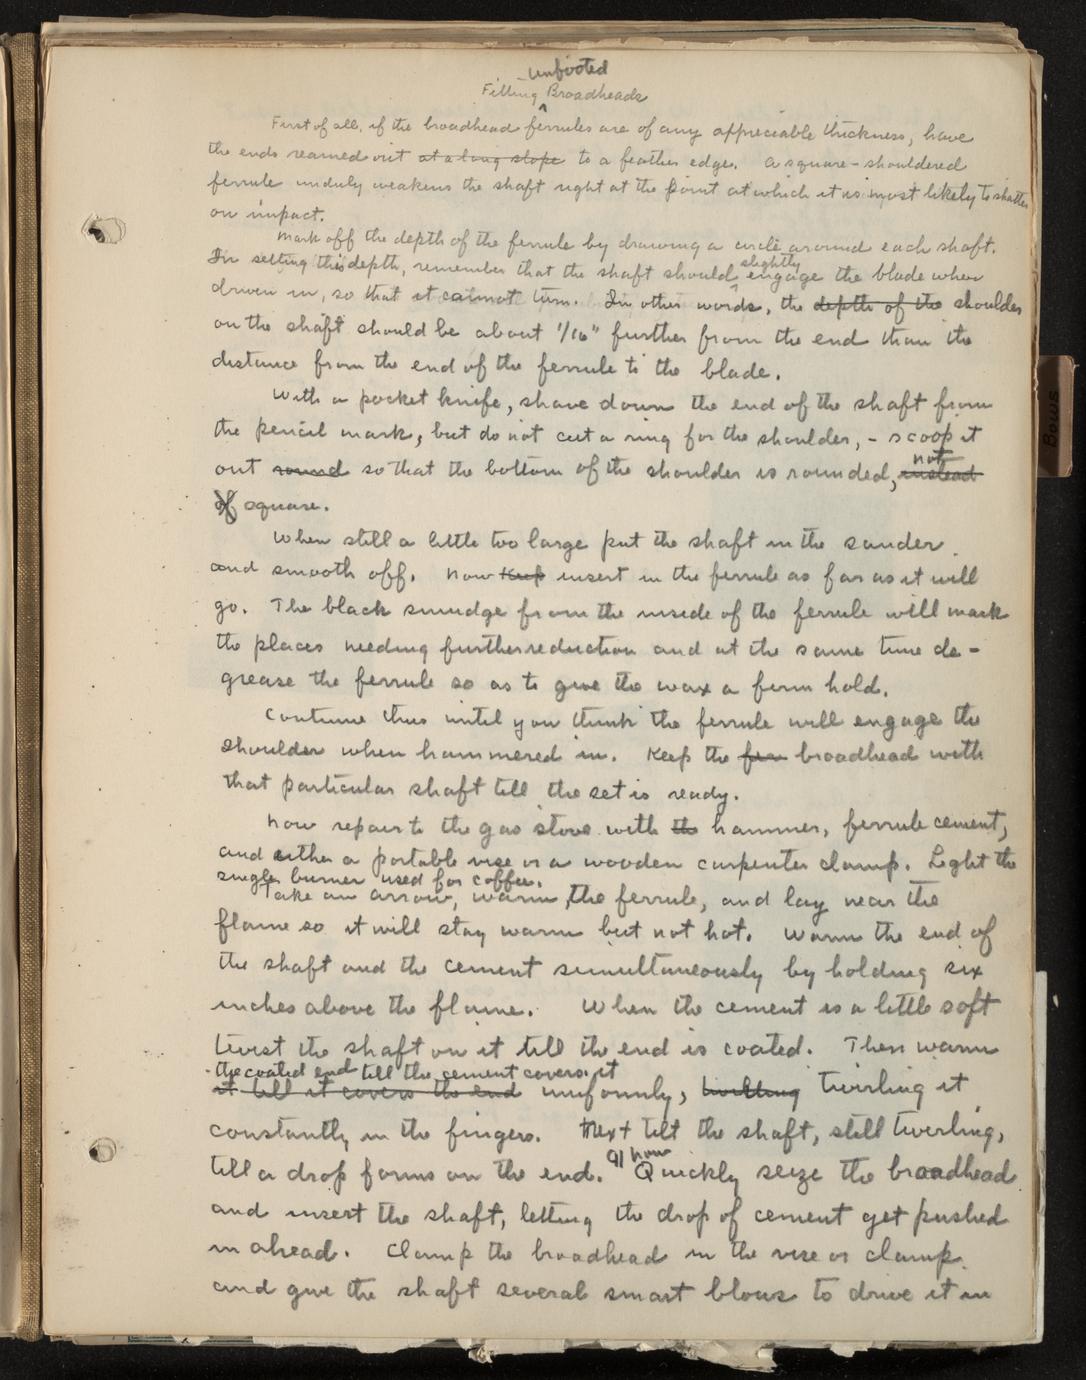 unfooted
Fitting ^ Broadheads
First of all, if the broadhead ferrules are of any appreciable thickness, have
the ends reamed out at a long slope to a feather edge. A square-shouldered
ferrule unduly weakens the shaft right at the point at which it is most likely to shatter
on impact.
Mark off the depth of the ferrule by drawing a circle around each shaft.
In setting this depth, remember that the shaft should ^ slightly engage the blade when
driven in, so that it cannot turn. In other words, the depth of the shoulder
on the shaft should be about 1/16" further from the end than the
distance from the end of the ferrule to the blade.
With a pocket knife, shave down the end of the shaft from
the pencil mark, but do not cut a ring for the shoulder, - scoop it
out round so that the bottom of the shoulder is rounded, instead not
of square.
When still a little too large put the shaft in the sander
and smooth off. Now keep insert in the ferrule as far as it will
go. The black smudge from the inside of the ferrule will mark
the places needing further reduction and at the same time de-
grease the ferrule so as to give the wax a firm hold.
Continue thus until you think the ferrule will engage the
shoulder when hammered in. Keep the fer broadhead with
that particular shaft till the set is ready.
Now repair to the gas stove with the hammer, ferrule cement,
and either a portable vise or a wooden carpenter clamp. Light the
single burner used for coffee.
Take an arrow, warm the ferrule, and lay near the
flame so it will stay warm but not hot. Warm the end of
the shaft and the cement simultaneously by holding six
inches above the flame. When the cement is a little soft
twist the shaft on it till the end is coated. Then warm
the coated end till the cement covers it
it till it covers the end uniformly, twirling it
constantly in the fingers. Next tilt the shaft, still twirling,
till a drop forms on the end. Quickly seize the broadhead
and insert the shaft, letting the drop of cement get pushed
in ahead. Clamp the broadhead in the vise or clamp
and give the shaft several smart blows to drive it in
Bows